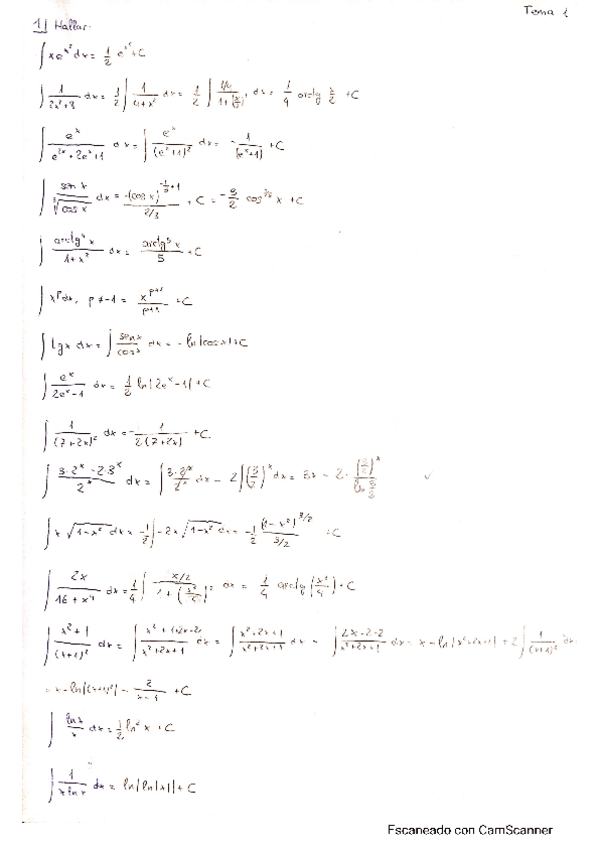 Tema 1
1) Hallar.
∫ x e^{x²} dx = 1/2 e^{x²} + C
∫ 1/(2x²+8) dx = 1/2 ∫ 1/(4+x²) dx = 1/2 ∫ dx = 1/4 arctg x/2 + C
∫ e^x/(e^{2x}+2e^x+1) dx = ∫ e^x/(e^x+1)² dx = -1/(e^x+1) + C
∫ sen x/∛(cos x) dx = -(cos x)^{-1/3+1}/(2/3) + C = -3/2 cos^{2/3} x + C
∫ arctg⁴ x/(1+x²) dx = arctg⁵ x/5 + C
∫ x^p dx, p ≠ -1 = x^{p+1}/(p+1) + C
∫ tg x dx = ∫ sen x/cos x dx = - ln|cos x| + C
∫ e^x/(2e^x-1) dx = 1/2 ln|2e^x-1| + C
∫ 1/(7+2x)² dx = - 1/(2(7+2x)) + C
∫ (3·2^x - 2·3^x)/2^x dx = ∫ 3·2^x/2^x dx - 2∫(3/2)^x dx = 3x - 2·(3/2)^x/ln 3/2 ✓
∫ x √(1-x²) dx = -1/2 ∫ -2x √(1-x²) dx = -1/2 (1-x²)^{3/2}/(3/2) + C
∫ 2x/(16+x⁴) dx = 1/4 ∫ (x/2)/(1+(x²/4)²) dx = 1/4 arctg (x²/4) + C
∫ (x²+1)/(x+1)² dx = ∫ (x²+1+2x-2x)/(x²+2x+1) dx = ∫ (x²+2x+1)/(x²+2x+1) dx - ∫ (2x+2-2)/(x²+2x+1) dx = x - ln|x²+2x+1| + 2∫ 1/(x+1)² dx
= x - ln|(x+1)²| - 2/(x+1) + C
∫ ln x/x dx = 1/2 ln² x + C
∫ 1/(x ln x) dx = ln|ln|x|| + C
Escaneado con CamScanner